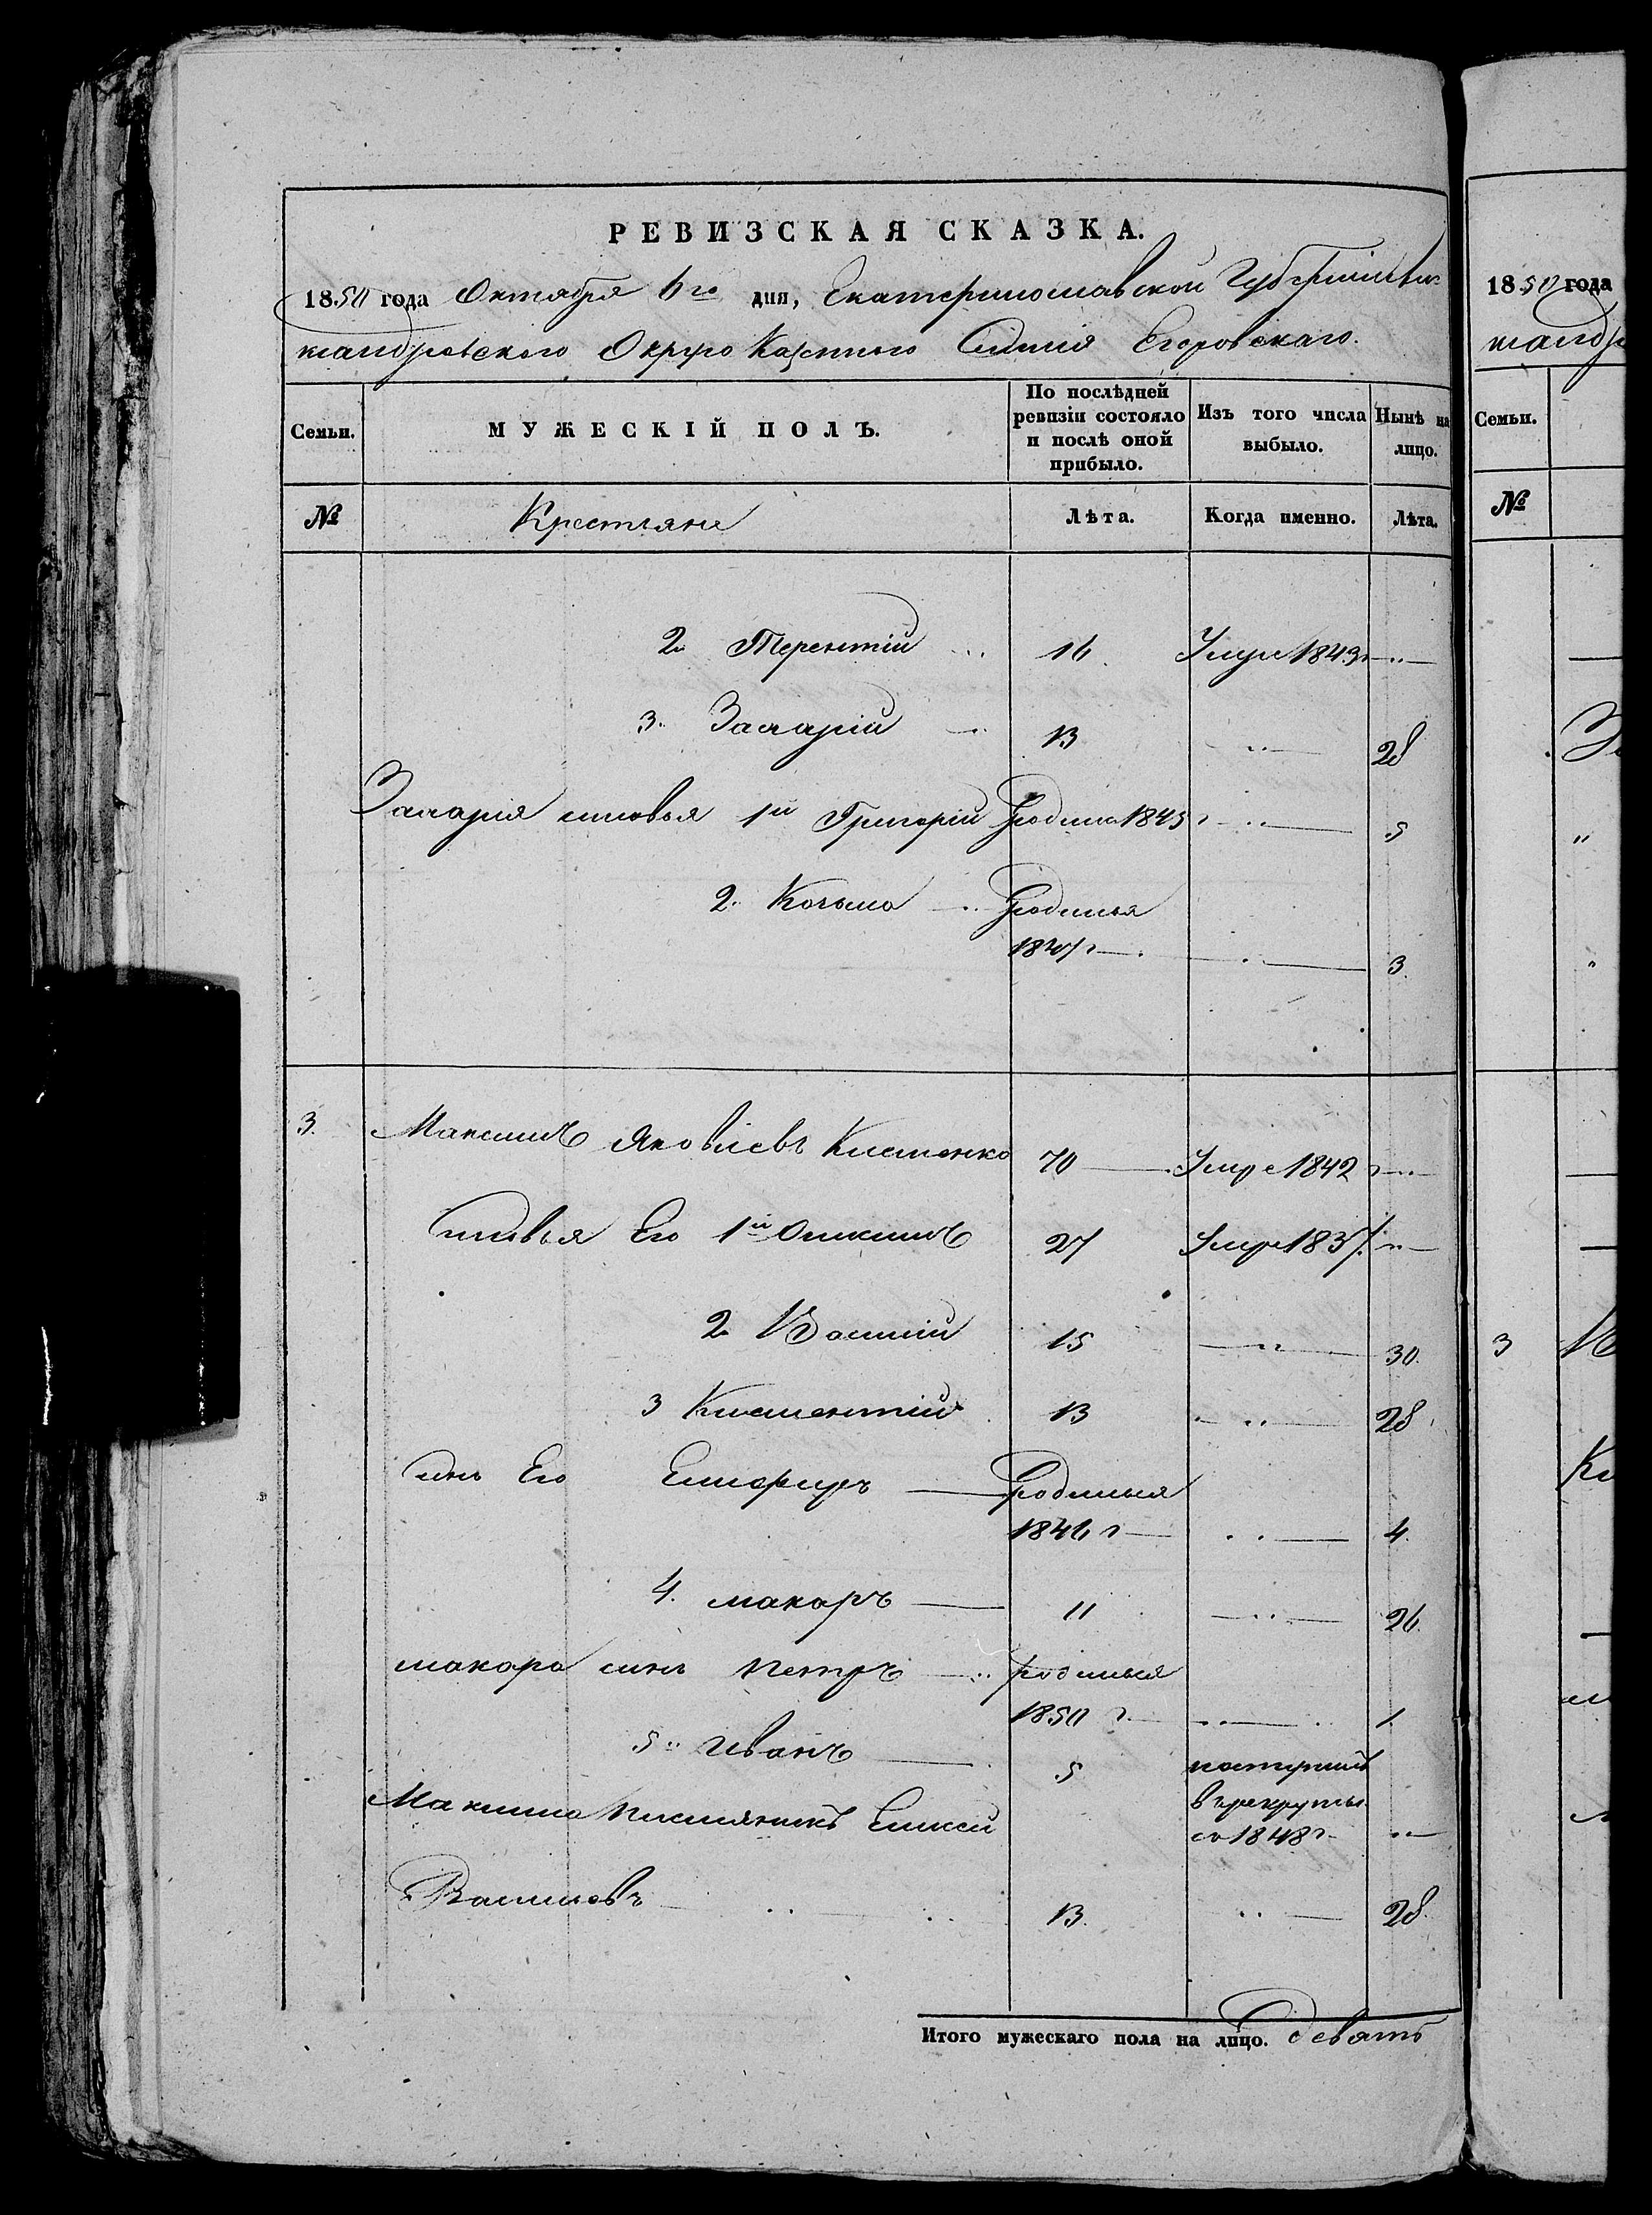 РЕВИЗСКАЯ СКАЗКА.
1850 года Октября 6го дня, Екатеринославской Губерніи Алек-
сандровского Округа Казенного Селенія Егоровскаго.
Семьи. МУЖЕСКІЙ ПОЛЪ. По послѣдней ревизіи состояло и послѣ оной прибыло. Изъ того числа выбыло. Нынѣ на лицо.
№ Крестяне Лѣта. Когда именно. Лѣта.
2. Терентій 16. Умре 1843 г
3. Захарій 13 28
Захарія сыновья 1й Григорій Родился 1845 г 5
2. Козьма Родился
1847 г 3
3. Максимъ Яковлевъ Клименко 70 Умре 1842 г
Сыновья Его 1й Онисимъ 27 Умре 1837
2. Василій 15 30.
3 Климентій 13 28
сынъ Его Елиферъ Родился
1846 г 4.
4. макаръ 11 26.
макара сынъ Петръ родился
1850 г. 1
5. Иванъ 5 поступилъ
в рекруты
Максима племяникъ Елисей
1848 г
Василиевъ 13. 28.
Итого мужескаго пола на лицо. девять
1850 года
сандр
Семьи.
№
3 М